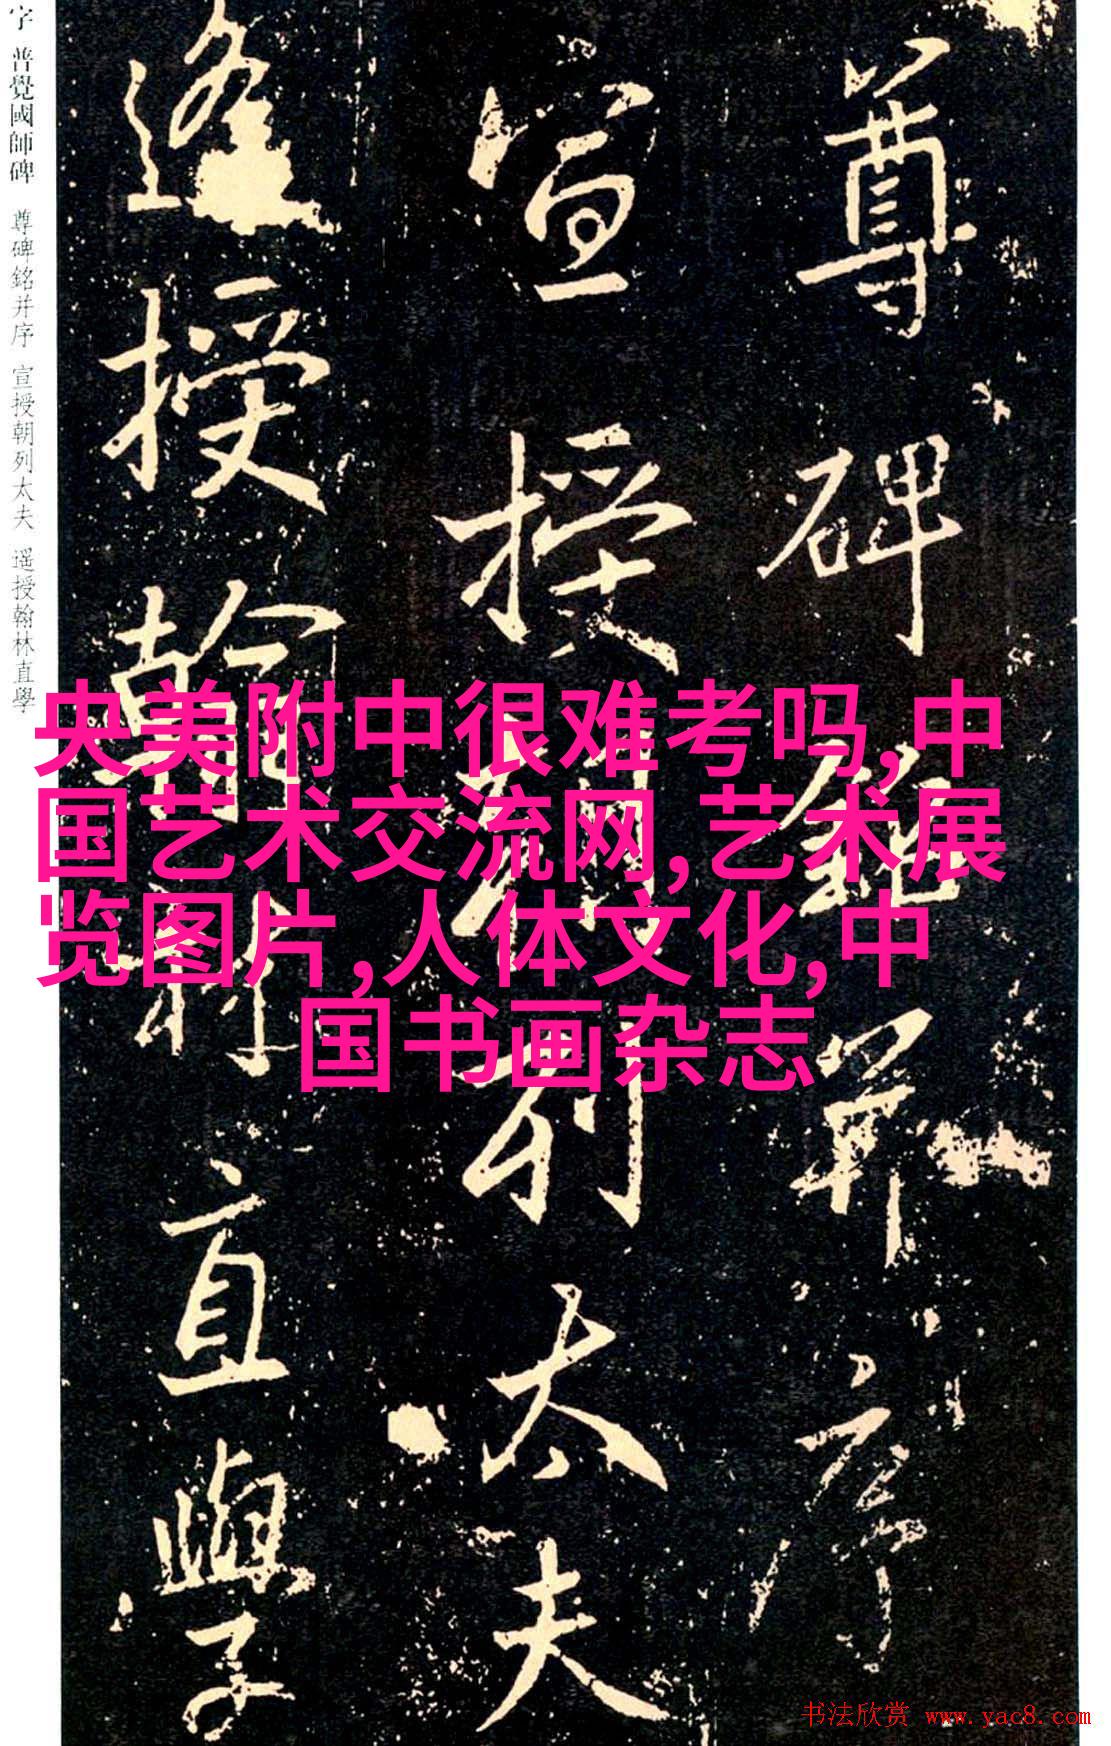 字 普覺國師碑 尊碑銘并序 宣授朝列太夫 遥授翰林直學
尊碑銘并序
宣授朝列太夫
遥授翰林直學
央美附中很难考吗,中
国艺术交流网,艺术展
览图片,人体文化,中
国书画杂志
书法欣赏 www.yac8.com